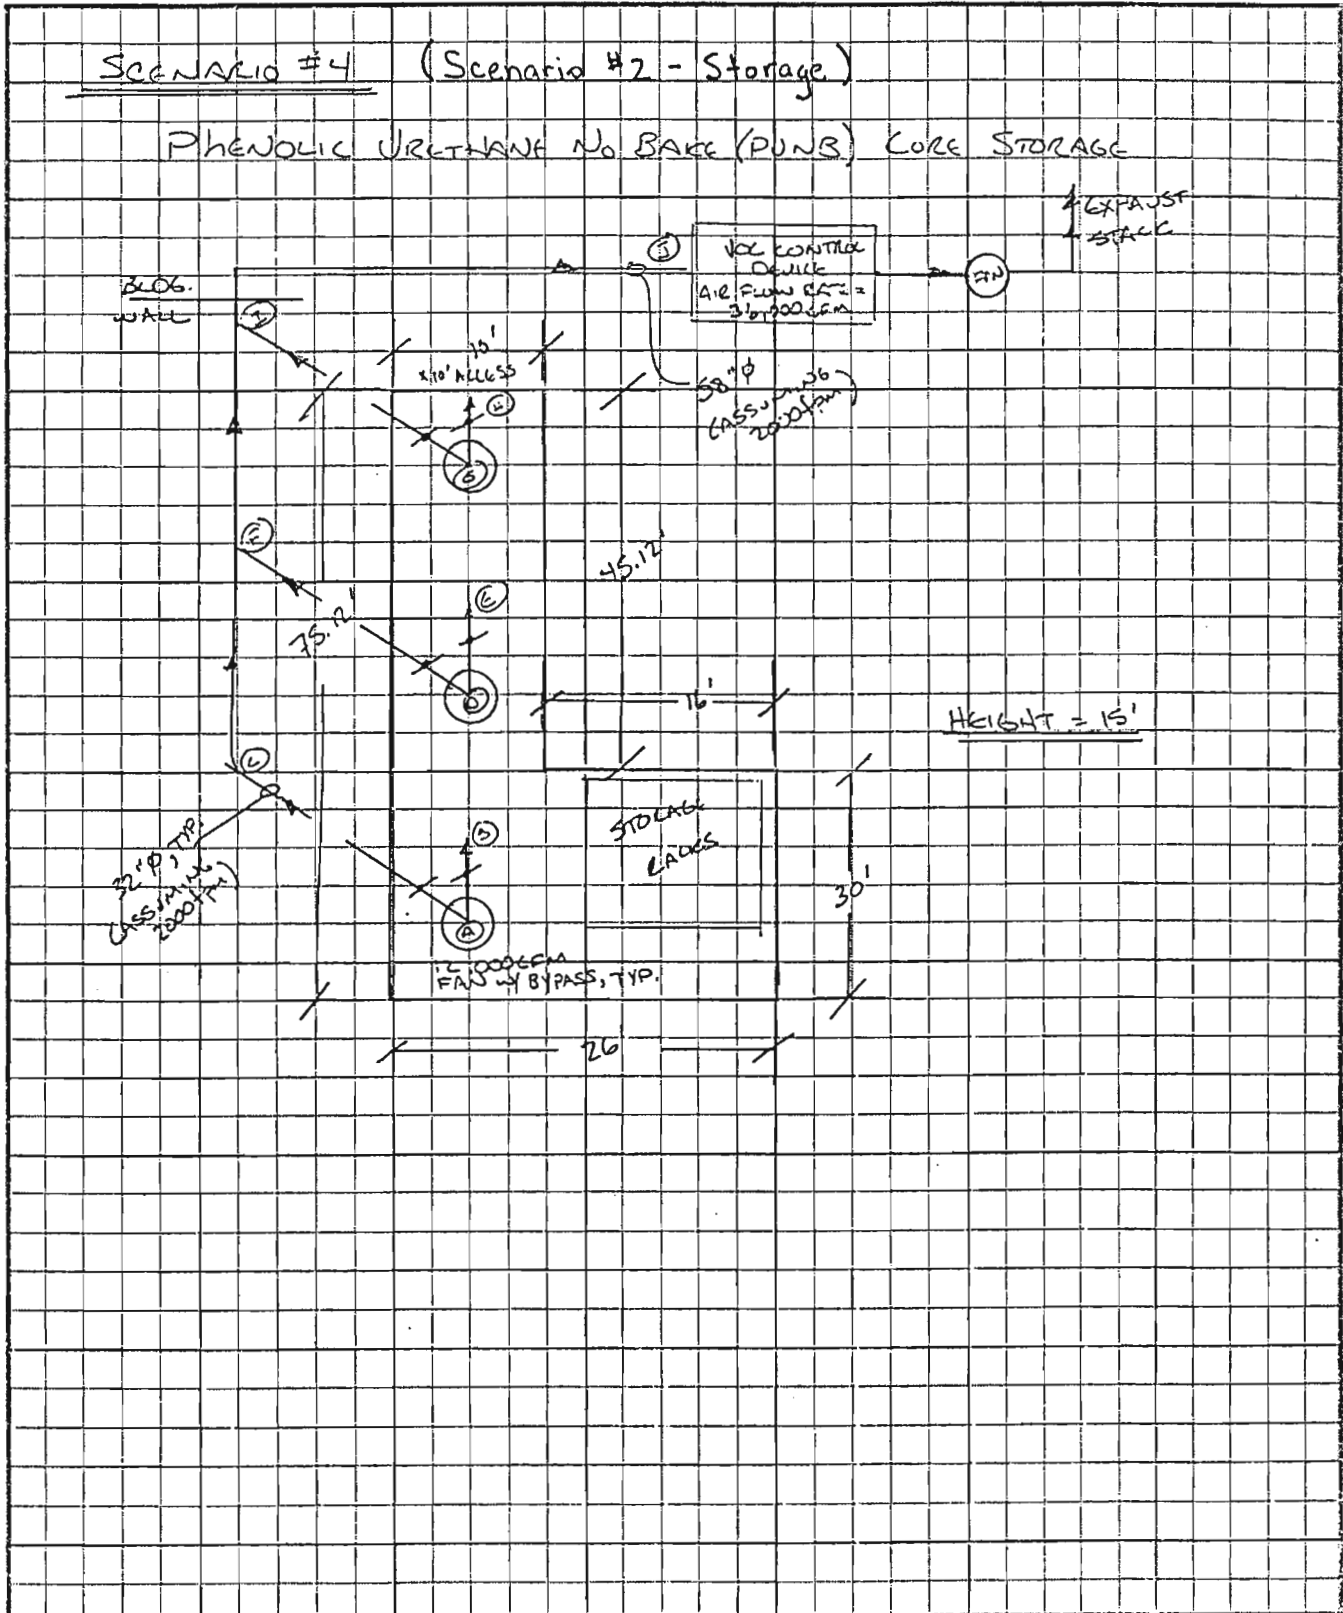 SCENARIO #4 (Scenario #2 - Storage)
PHENOLIC URETHANE NO BAKE (PUNB) CORE STORAGE
EXHAUST
STACK
J
VOC CONTROL
DEVICE
AIR FLOW RATE =
36,000 CFM
FN
BLDG.
WALL
I
10'
x 10' ACCESS
58"φ
(ASSUMING
2000fpm)
H
G
F
45.12'
E
75.12'
D
16'
HEIGHT = 15'
C
STORAGE
RACKS
32"φ, TYP.
(ASSUMING
2000fpm)
B
30'
A
12,000CFM
FAN W/ BYPASS, TYP.
26